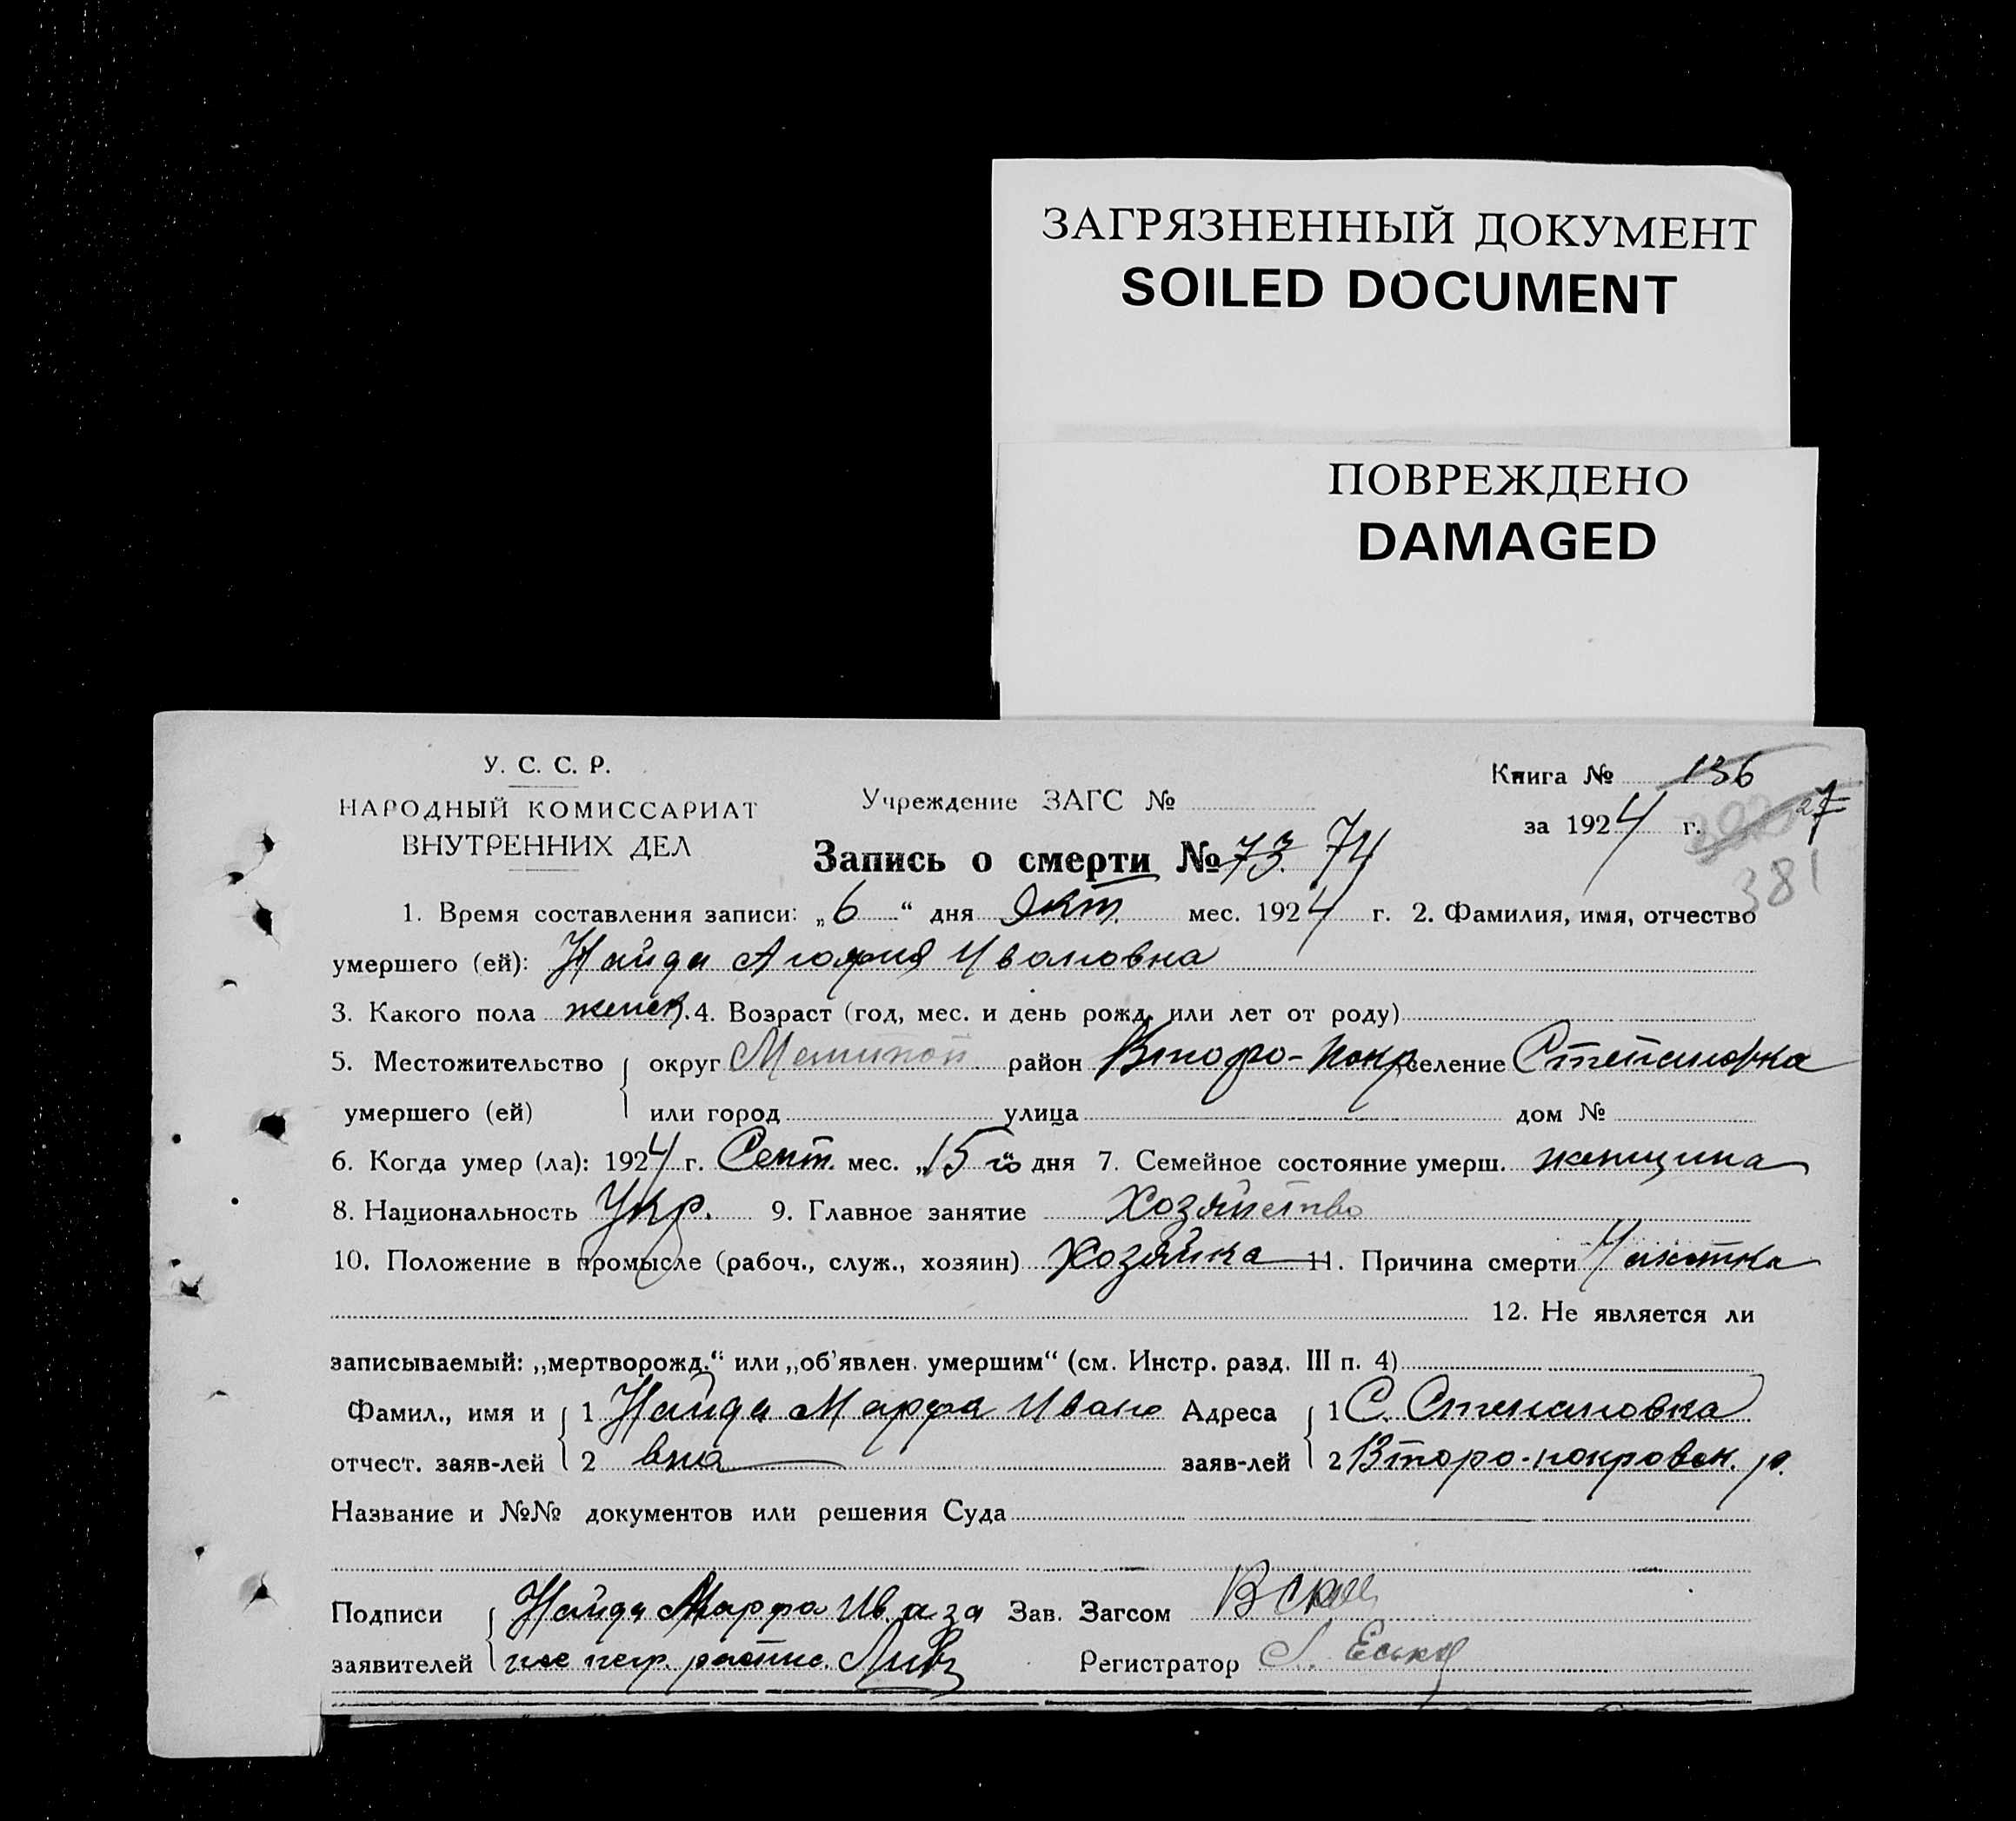 ЗАГРЯЗНЕННЫЙ ДОКУМЕНТ
SOILED DOCUMENT
ПОВРЕЖДЕНО
DAMAGED
У. С. С. Р.
НАРОДНЫЙ КОМИССАРИАТ
ВНУТРЕННИХ ДЕЛ
Учреждение ЗАГС №
Книга № 136
за 1924 г. 27
381
Запись о смерти № 73. 74
1. Время составления записи: „6“ дня Окт. мес. 1924 г. 2. Фамилия, имя, отчество
умершего (ей): Найда Агафия Ивановна
3. Какого пола женск. 4. Возраст (год, мес. и день рожд. или лет от роду)
5. Местожительство округ район Второ-Покр селение Степановка
умершего (ей) или город улица дом №
6. Когда умер (ла): 1924 г. Сент. мес. „15го“ дня 7. Семейное состояние умерш. женщина
8. Национальность Укр. 9. Главное занятие Хозяйство
10. Положение в промысле (рабоч., служ., хозяин) Хозяйка 11. Причина смерти Чахотка
12. Не является ли
записываемый: „мертворожд.“ или „об'явлен. умершим“ (см. Инстр. разд. III п. 4)
Фамил., имя и 1 Найда Марфа Ивано Адреса 1 С. Степановка
отчест. заяв-лей 2 вна заяв-лей 2 Второ-покровск. р.
Название и №№ документов или решения Суда
Подписи Найда Марфа Ив. а за Зав. Загсом
заявителей нее негр. распис. Регистратор